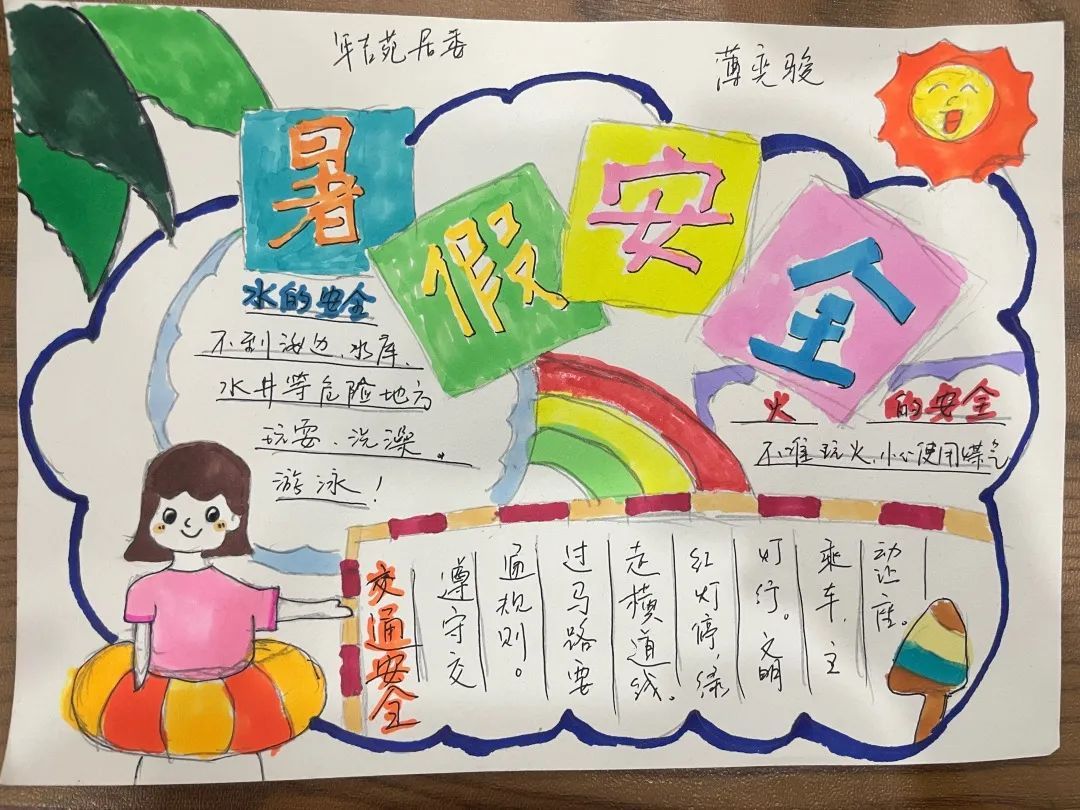 年吉苑居委
薄奕骏
暑假安全
水的安全
不到海边、水库、
水井等危险地方
玩耍、洗澡。
游泳！
火的安全
不准玩火，小心使用煤气
交通安全
遵守交
通规则。
过马路要
走横道线。
红灯停，绿
灯行。文明
乘车，主
动让座。